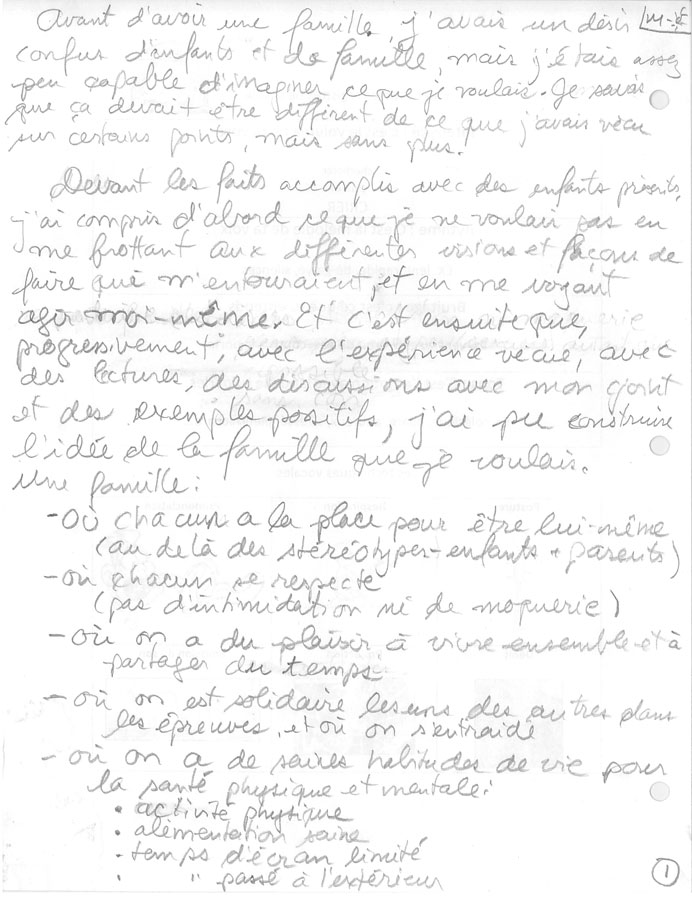 Avant d'avoir une famille j'avais un désir
confus d'enfants et de famille, mais j'étais assez
peu capable d'imaginer ce que je voulais. Je savais
que ça devait être différent de ce que j'avais vécu
sur certains points, mais sans plus.
Devant les faits accomplis avec des enfants présents,
j'ai compris d'abord ce que je ne voulais pas en
me frottant aux différentes visions et façons de
faire qui m'entouraient, et en me voyant
agir moi-même. Et c'est ensuite que,
progressivement, avec l'expérience vécue, avec
des lectures, des discussions avec mon cjoint
et des exemples positifs, j'ai pu construire
l'idée de la famille que je voulais.
Une famille :
- Où chacun a la place pour être lui-même
(au delà des stéréotypes - enfants + parents)
- où chacun se respecte
(pas d'intimidation ni de moquerie)
- où on a du plaisir à vivre ensemble et à
partager du temps
- où on est solidaire les uns des autres dans
les épreuves, et où on s'entraide
- où on a de saines habitudes de vie pour
la santé physique et mentale :
• activité physique
• alimentation saine
• temps d'écran limité
• " passé à l'extérieur
1